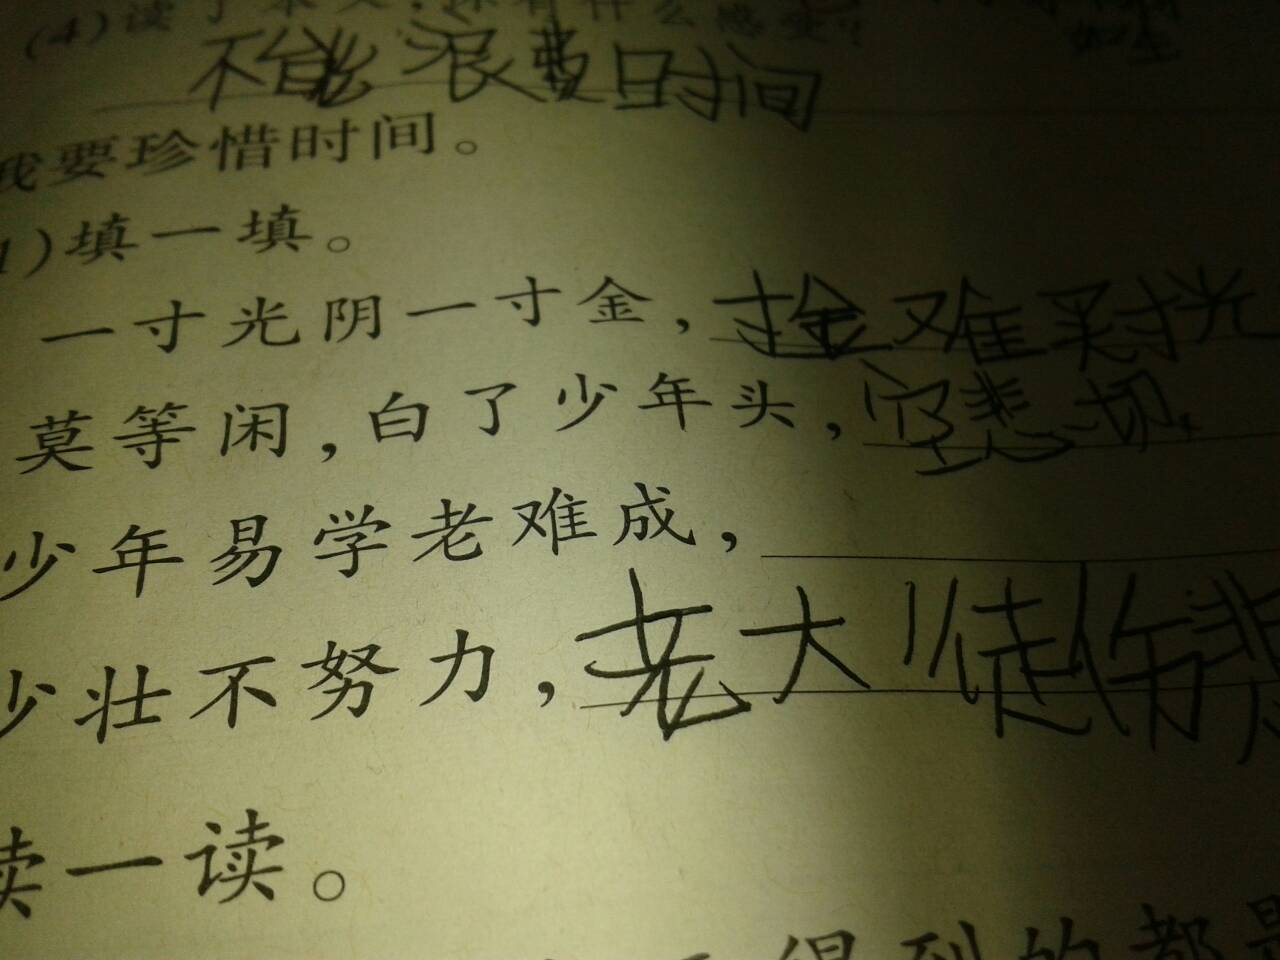 (4)读了本文,还有什么感受?
不能浪费时间
我要珍惜时间。
1)填一填。
一寸光阴一寸金,寸金难买寸光
莫等闲,白了少年头,空悲切.
少年易学老难成,
少壮不努力,老大徒伤悲
读一读。
得到的都是